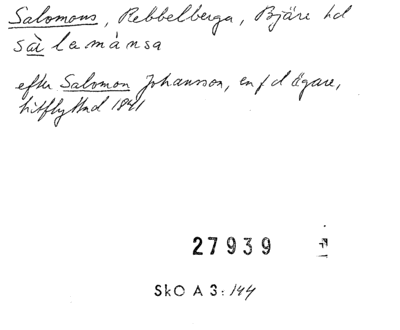 Salomons, Rebbelberga, Bjäre hd
sàlamánsa
efter Salomon Johansson, en f d ägare,
hitflyttad 1841
27939
SkO A 3: 144